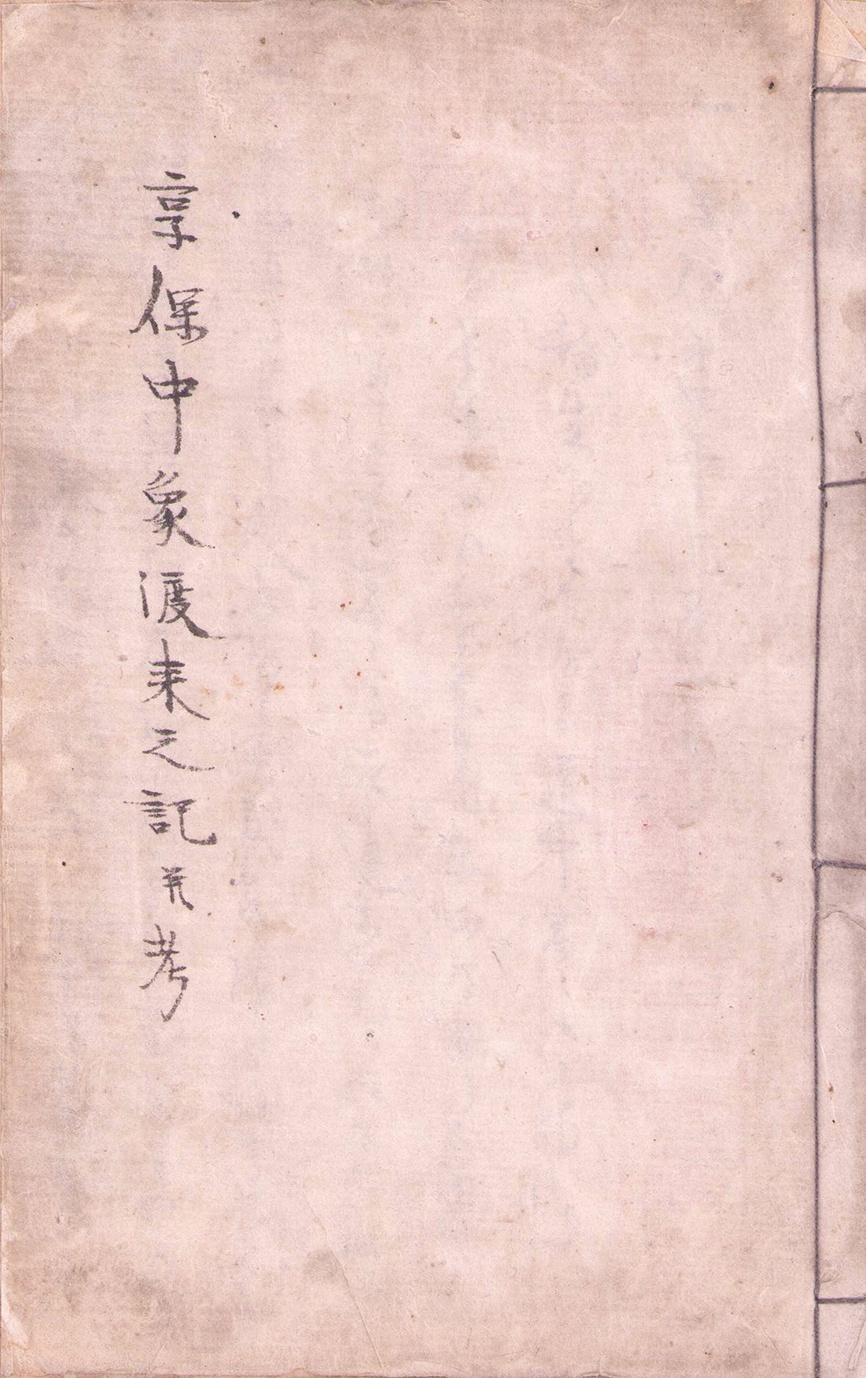 享保中象渡来之記并考